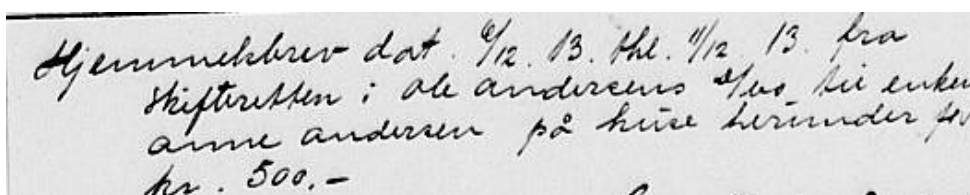 Hjemmelsbrev dat. 6/12. 13. thl. 11/12. 13. fra
skifteretten i Ole Andersens d/bo til enken
Anne Andersen på huse herunder for
kr. 500.-